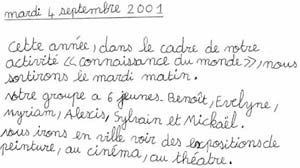 mardi 4 septembre 2001
Cette année, dans le cadre de notre
activité «connaissance du monde», nous
sortirons le mardi matin.
Notre groupe a 6 jeunes. Benoît, Evelyne,
Myriam, Alexis, Sylvain et Mickaël.
Nous irons en ville voir des expositions de
peinture, au cinéma, au théatre.